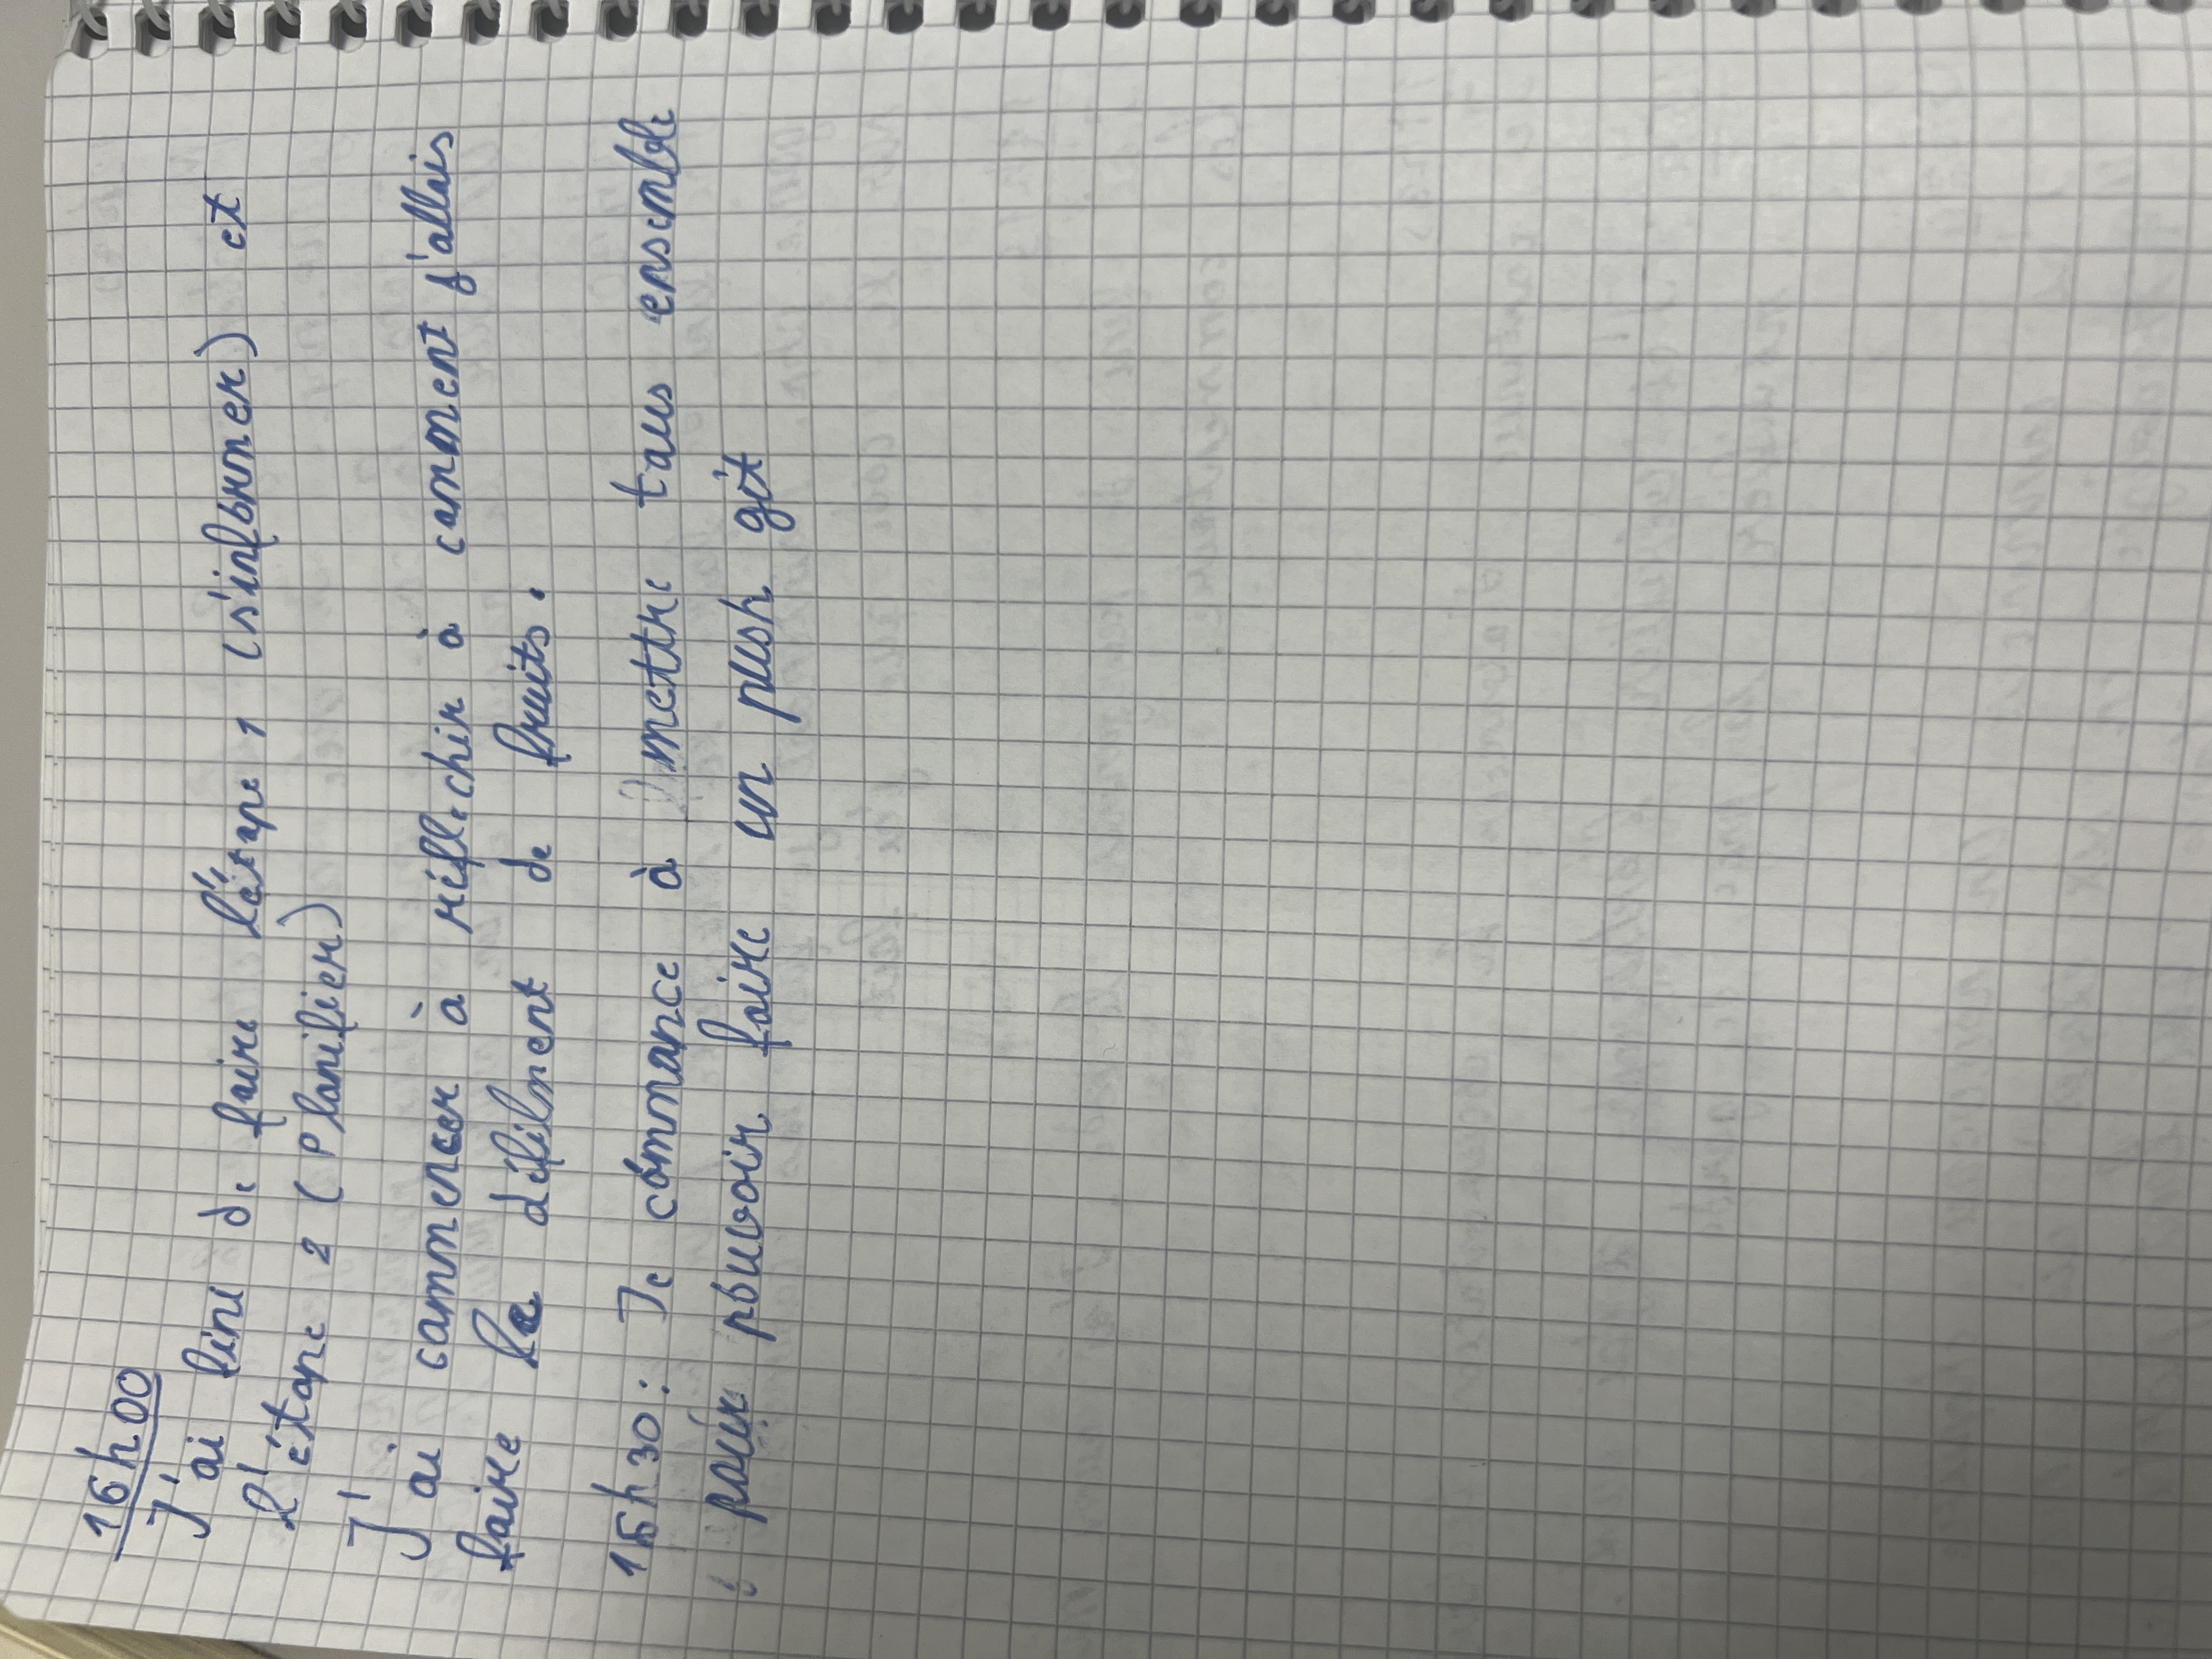 16h00
J'ai fini de faire l'étape 1 (s'informer) et
l'étape 2 (Planifier)
J'ai commencer à réflechir à comment j'allais
faire le défilment de fruits.
16h30: Je commance à mettre tous ensemble
pour pouvoir faire un push git